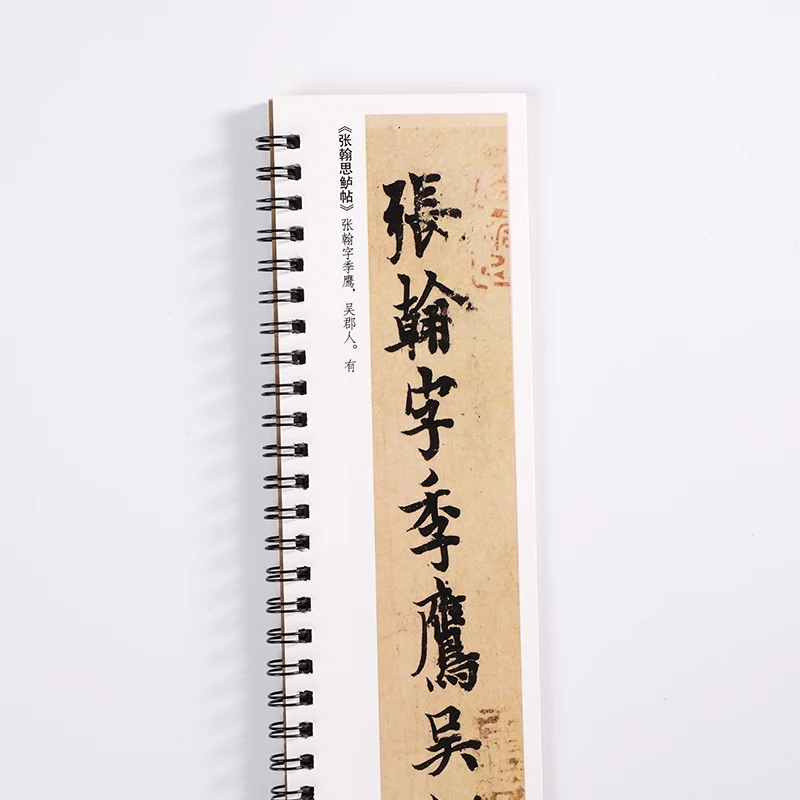 《张翰思鲈帖》张翰字季鹰，吴郡人。有
張翰字季鷹吴